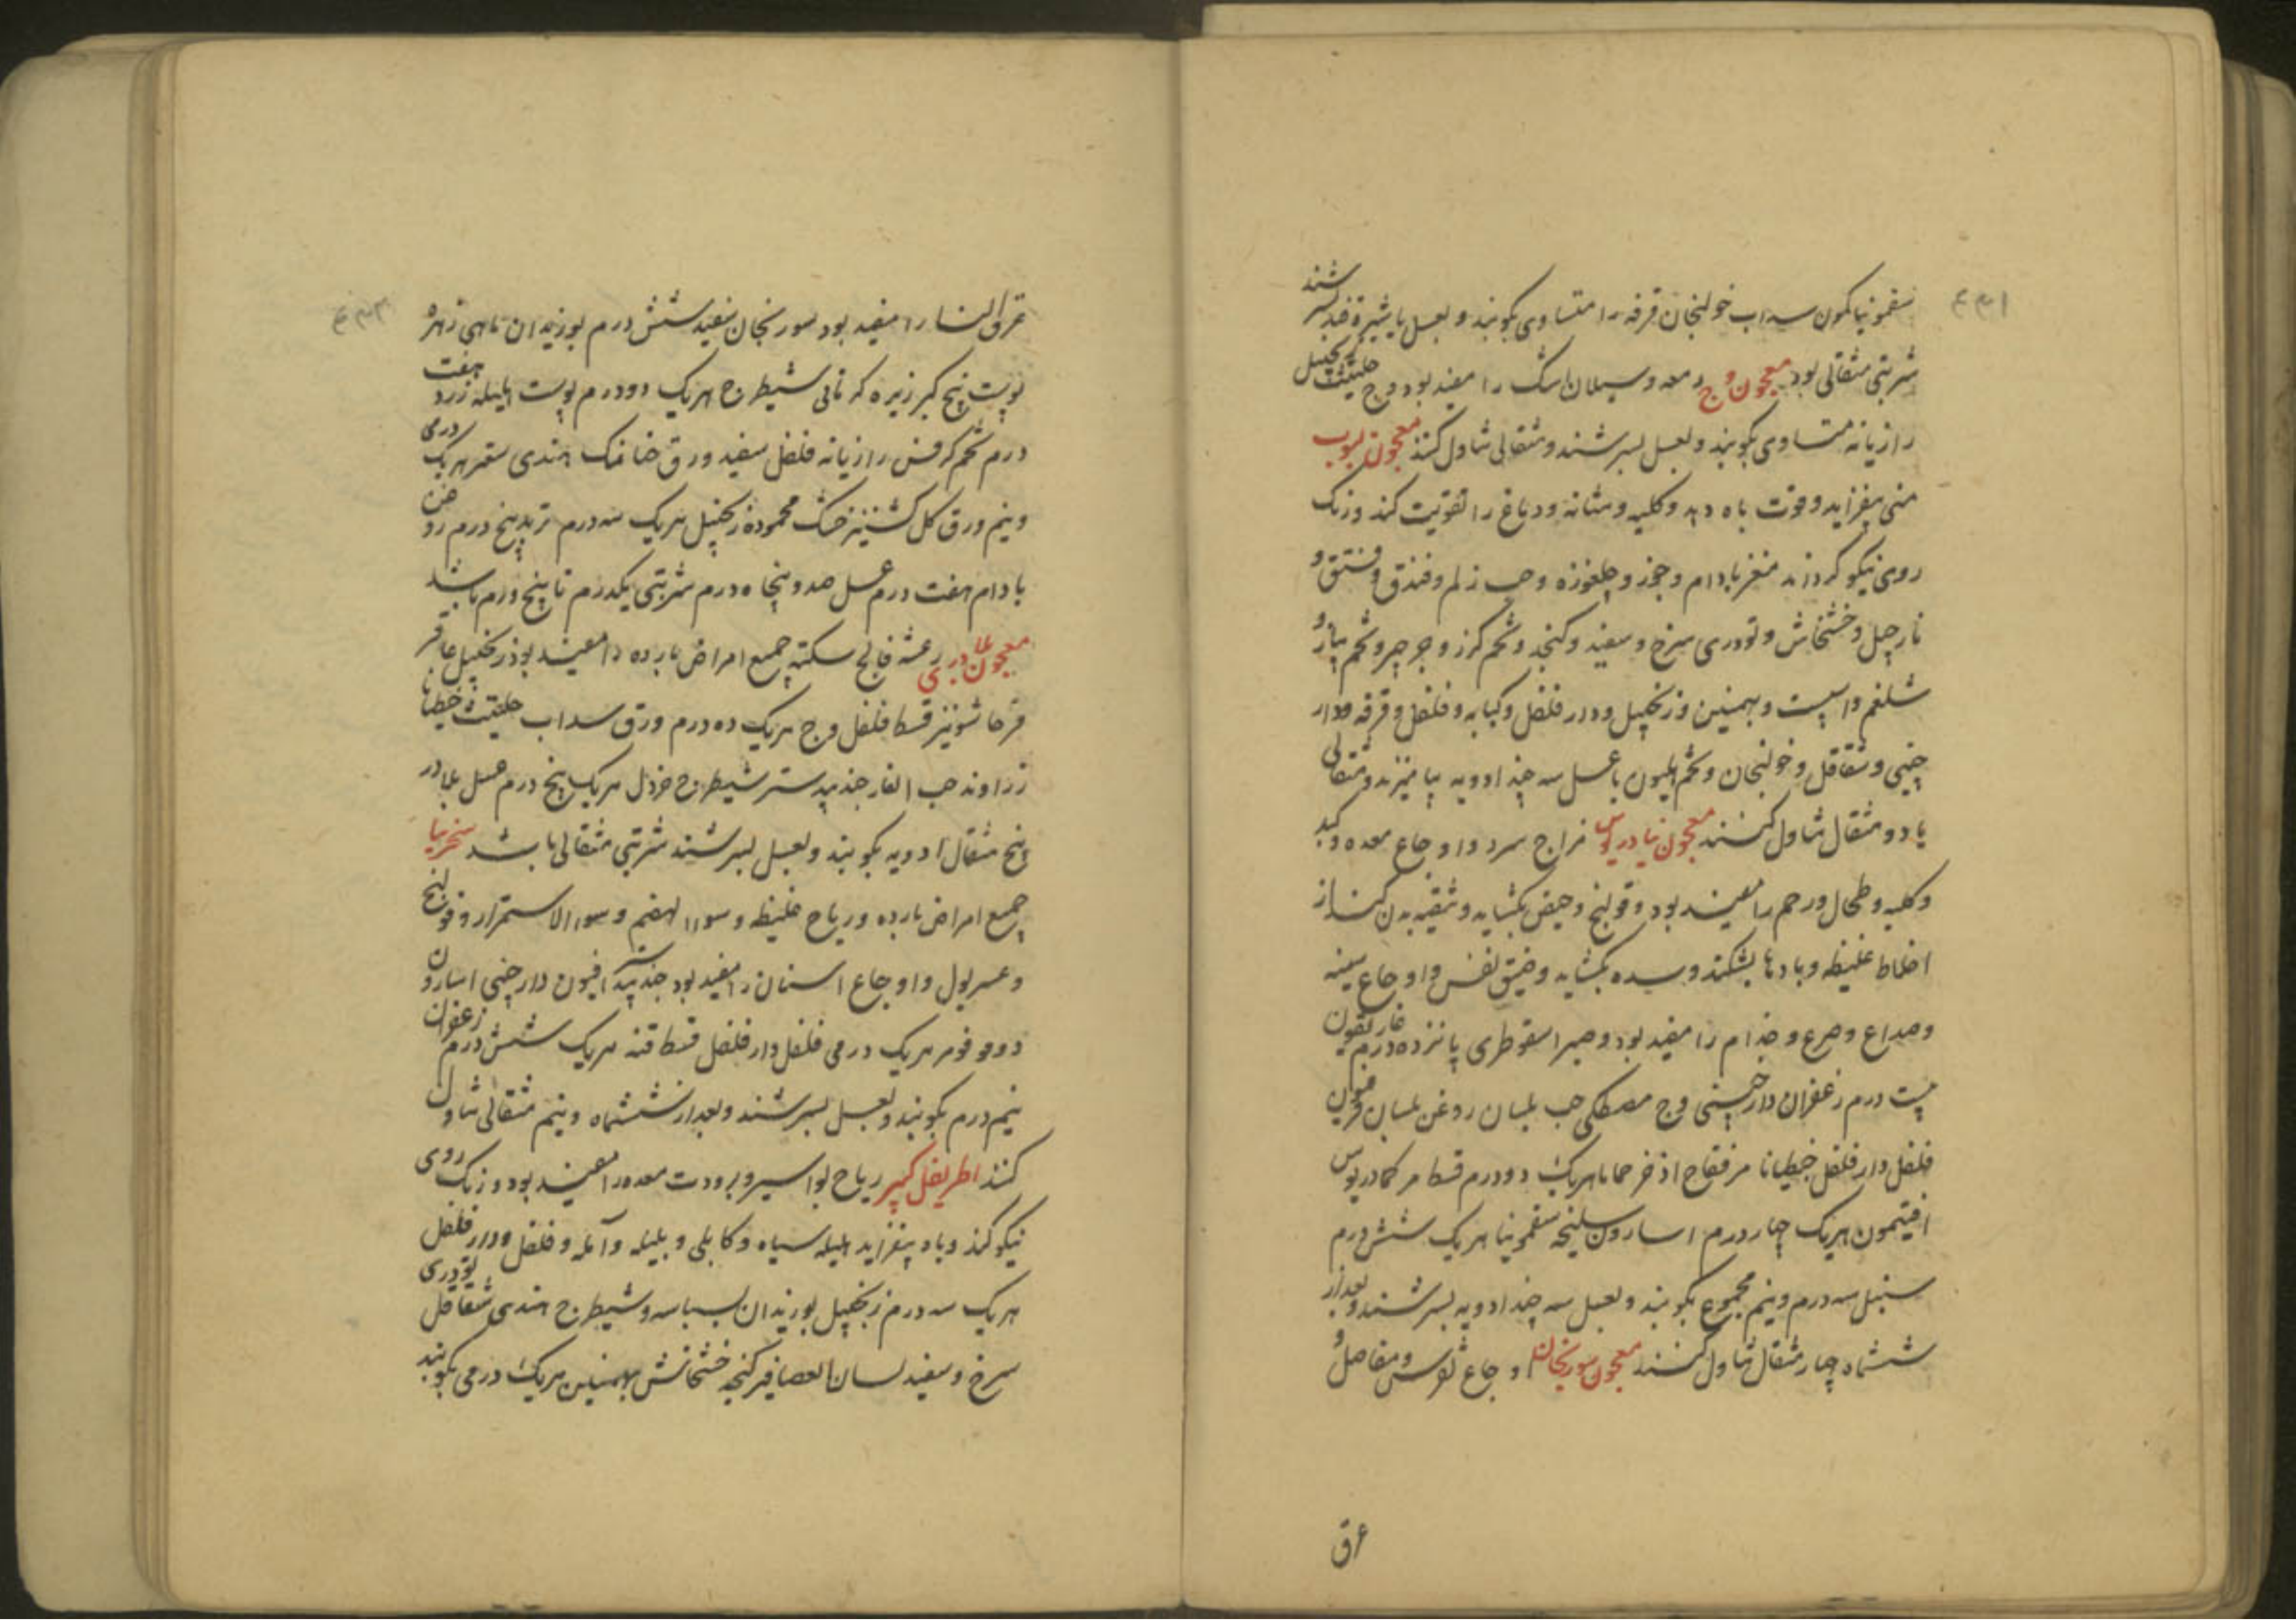 سقمونیا کمون سداب خولنجان قرفه را متساوی بکوبند و بعسل یا شیره قند بسرشند
شربتی مثقالی بود معجون وج معده و سیلان اشک را مفید بود وج حلتیت زنجبیل
رازیانه متساوی بکوبند و بعسل بسرشند و مثقالی تناول کنند معجون لبوب
منی بیفزاید و قوت باه دهد و کلیه و مثانه و دماغ را تقویت کند و رنک
روی نیکو کرداند مغز بادام و جوز و چلغوزه و حب زلم و فندق و فستق و
نارجیل و خشخاش و تودری سرخ و سفید و کنجد و تخم کزر و جرجیر و تخم پیاز و
شلغم و اسپست و بهمنین و زنجبیل و دار فلفل و کبابه و فلفل و قرفه و دار
چینی و شقاقل و خولنجان و تخم هلیون با عسل سه چند ادویه بیامیزند و مثقالی
یا دو مثقال تناول کنند معجون نیادریوس مزاج سرد و اوجاع معده و کبد
و کلیه و طحال و رحم را مفید بود و قولنج و حیض بکشاید و تنقیه بدن کند از
اخلاط غلیظه و بادها بشکند و سده بکشاید و ضیق نفس و اوجاع سینه
و صداع و صرع و جذام را مفید بود و صبر اسقوطری پانزده درم غاریقون
بیست درم زعفران دارچینی وج مصطکی حب بلسان روغن بلسان فرفیون
فلفل دار فلفل جنطیانا مر فقاح اذخر حماما هریک دو درم قسط مر کمادریوس
افتیمون هریک چهار درم اسارون سلیخه سقمونیا هریک شش درم
سنبل سه درم و نیم مجموع بکوبند و بعسل سه چند ادویه بسرشند و بعد از
ششماه چهار مثقال تناول کنند معجون سورنجان اوجاع نقرس و مفاصل و
عرق
عرق النسا را مفید بود سورنجان سفید شش درم بوزیدان ماهی زهره
پوست بیخ کبر زیره کرمانی شیطرج هریک دو درم پوست هلیله زرد هفت
درم تخم کرفس رازیانه فلفل سفید ورق حنا نمک هندی سقمر هریک درمی
و نیم ورق کل کشنیز خشک محموده زنجبیل هریک سه درم تربد پنج درم روغن
بادام هفت درم عسل صد و پنجاه درم شربتی یکدرم تا پنج درم باشد
معجون بلادری رعشه فالج سکته جمیع امراض بارده را مفید بود زنجبیل عاقر
قرحا شونیز قسط فلفل وج هریک ده درم ورق سداب حلتیت جنطیانا
زراوند حب الغار جندبیدستر شیطرج خردل هریک پنج درم عسل بلادر
پنج مثقال ادویه بکوبند و بعسل بسرشند شربتی مثقالی باشد سنجرینا
جمیع امراض بارده و ریاح غلیظه و سوء الهضم و سوء الاستمرار و قولنج
و عسر بول و اوجاع اسنان را مفید بود جندبیدستر افیون دارچینی اسارون
دوقو فو مر هریک درمی فلفل دار فلفل قسط قنه هریک شش درم زعفران
نیم درم بکوبند و بعسل بسرشند و بعد از ششماه و نیم مثقالی تناول
کنند اطریفل کبیر ریاح بواسیر و برودت معده را مفید بود و رنک روی
نیکو کند و باه بیفزاید هلیله سیاه و کابلی و بلیله و آمله و فلفل و دار فلفل
هریک سه درم زنجبیل بوزیدان بسباسه و شیطرج هندی شقاقل تودری
سرخ و سفید لسان العصافیر کنجد خشخاش بهمنین هریک درمی بکوبند